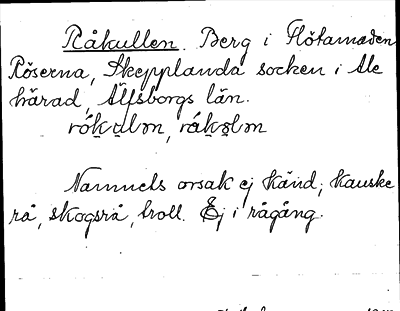 Råkullen. Berg i Flötamaden
Röserna, Skepplanda socken i Ale
härad, Älfsborgs län.
Namnets orsak ej känd; kanske
rå, skogsrå, troll. Ej i rågång.